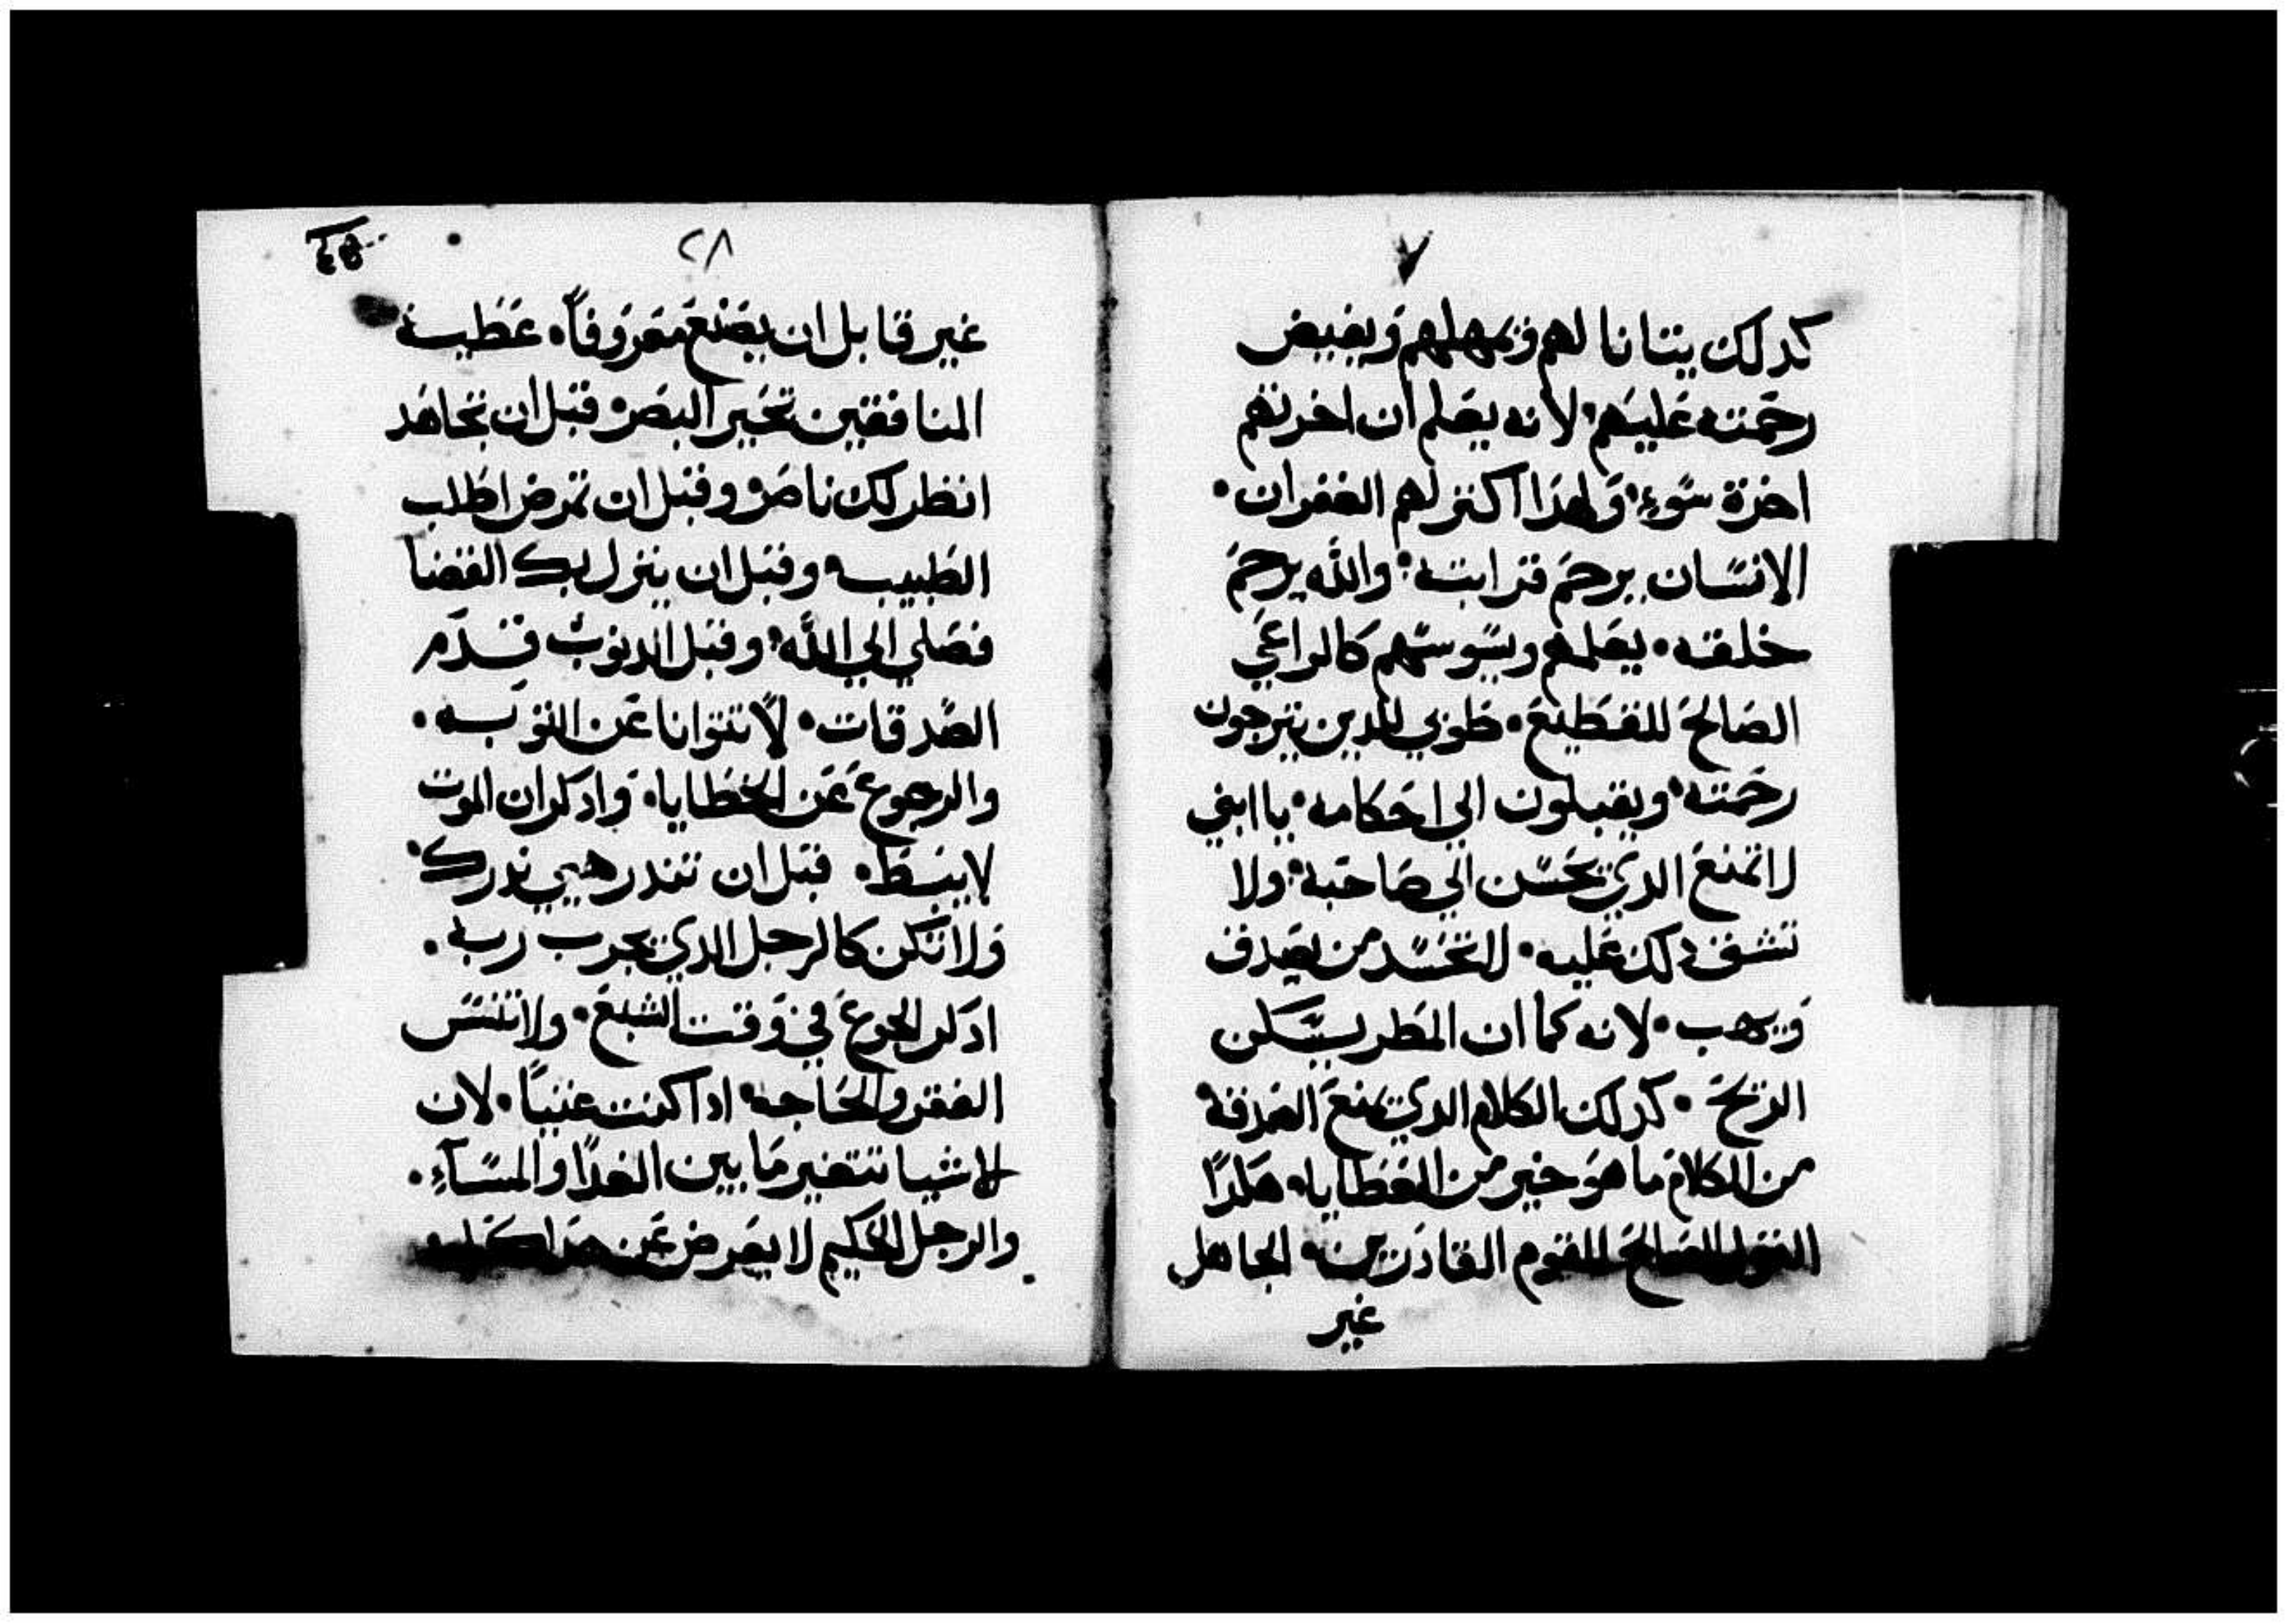 كدلك يتانا لهم ويمهلهم ويفيض
رحمته عليهم لانه يعلم ان اخرتهم
اخرة سوء ولهدا اكثر لهم الغفران
الانسان يرحم قرابته والله يرحم
خلقه يعلمهم ويسوسهم كالراعي
الصالح للقطيع طوبي للدين يترجون
رحمته ويقبلون الي احكامه يا ابني
لا تمنع الدي يحسن الي صاحبه ولا
تشق دلك عليه لا تحسد من يصدف
ويهب لانه كما ان المطر يسكن
الريح كدلك الكلام الدي يمنع الصدقة
من الكلام ما هو خير من العطايا هكدا
القول الصالح للقوم القادرين الجاهل
غير
٢٨
غير قابل ان يصنع معروفاً عطية
المنافقين تحير البصر قبل ان تجاهد
انظر لك ناصر وقبل ان تمرض اطلب
الطبيب وقبل ان ينزل بك القضا
فصلي الي الله وقبل الدنوب قدم
الصدقات لا تتوانا عن التوبه
والرجوع عن الخطايا وادكر ان الموت
لا يبسط قبل ان تندر هيي ندرك
ولا تكن كالرجل الدي يجرب ربه
ادكر الجوع في وقت الشبع ولا تنس
الفقر والحاجه ادا كنت غنياً لان
الاشيا تتغير ما بين الغدا والمسآء
والرجل الحكيم لا يعرض عن هدا كله